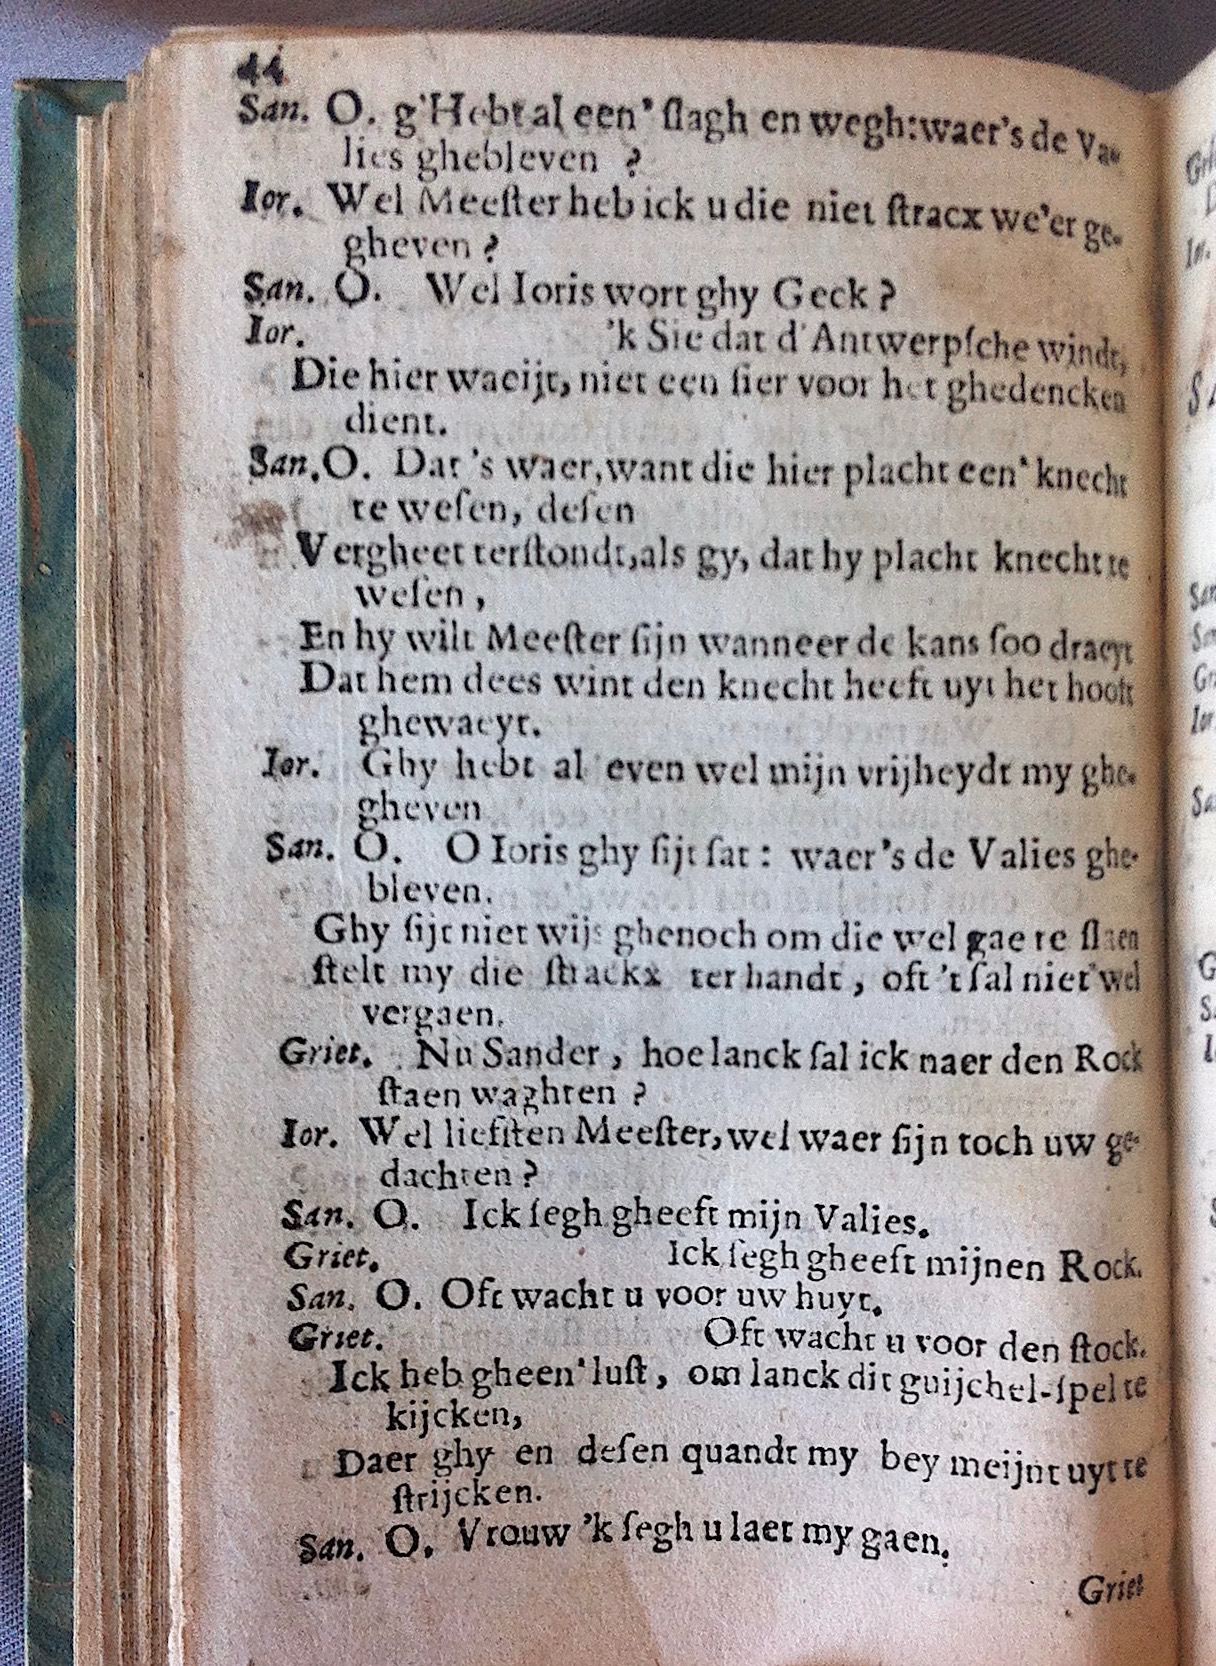 44
San. O. g'Hebt al een' ſlagh en wegh: waer's de Va-
lies ghebleven ?
Ior. Wel Meeſter heb ick u die niet ſtracx we'er ge-
gheven ?
San. O. Wel Ioris wort ghy Geck ?
Ior. 'k Sie dat d'Antwerpſche windt,
Die hier waeijt, niet een ſier voor het ghedencken
dient.
San. O. Dat 's waer, want die hier placht een' knecht
te weſen, deſen
Vergheet terſtondt, als gy, dat hy placht knecht te
weſen ,
En hy wilt Meeſter ſijn wanneer de kans ſoo draeyt
Dat hem dees wint den knecht heeft uyt het hooft
ghewaeyt.
Ior. Ghy hebt al even wel mijn vrijheydt my ghe-
gheven
San. O. O Ioris ghy ſijt ſat : waer's de Valies ghe-
bleven.
Ghy ſijt niet wijs ghenoch om die wel gae te ſlaen
ſtelt my die ſtrackx ter handt , oft 't ſal niet wel
vergaen.
Griet. Nu Sander , hoe lanck ſal ick naer den Rock
ſtaen waghten ?
Ior. Wel liefſten Meeſter, wel waer ſijn toch uw ge-
dachten ?
San. O. Ick ſegh gheeft mijn Valies.
Griet. Ick ſegh gheeft mijnen Rock.
San. O. Oft wacht u voor uw huyt.
Griet. Oft wacht u voor den ſtock.
Ick heb gheen' luſt , om lanck dit guijchel-ſpel te
kijcken,
Daer ghy en deſen quandt my bey meijnt uyt te
ſtrijcken.
San. O. Vrouw 'k ſegh u laet my gaen.
Griet